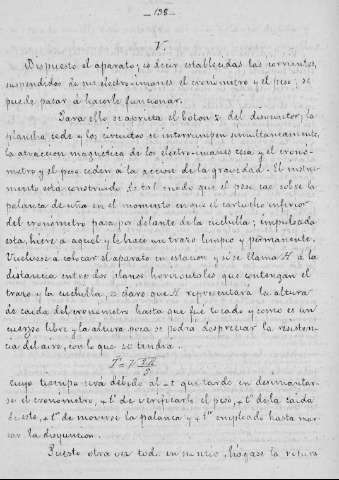 — 138 —
V.
Dispuesto el aparato; es decir establecidas las corrientes,
suspendidos de sus electro-imanes el cronómetro y el peso; se
puede pasar á hacerle funcionar.
Para ello se aprieta el boton z del disyuntor; la
plancha cede y los circuitos se interrumpen simultaneamente,
la atraccion magnética de los electro-imanes cesa y el cronó-
metro y el peso ceden á la accion de la gravedad. El instru-
mento está construido de tal modo que el peso cae sobre la
palanca de uña en el momento en que el cartucho inferior
del cronómetro pasa por delante de la cuchilla; impulsada
esta, hiere á aquel y le hace un trazo limpio y permanente.
Vuelvase á colocar el aparato en estacion y si se llama H á la
distancia entre dos planos horizontales que contengan el
trazo y la cuchilla, es claro que H representará la altura
de caida del cronometro hasta que fué tocado y como es un
cuerpo libre y la altura poca se podrá despreciar la resisten-
cia del aire, con lo que se tendrá.
cuyo tiempo será debido al -t que tarde en desimantar-
se el cronómetro, + t' de verificarlo el peso, + t'' de la caida
de este, + t''' de moverse la palanca y + t'''' empleado hasta mar-
car la disyuncion.
Puesto otra vez todo en servicio, hágase la rotura